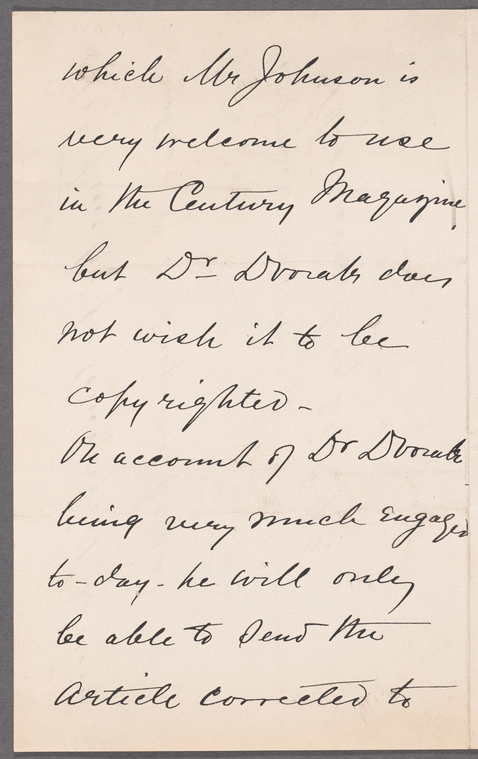 which Mr Johnson is
very welcome to use
in the Century Magazine,
but Dr Dvorak does
not wish it to be
copyrighted -
On account of Dr Dvorak
being very much engaged
to-day - he will only
be able to send the
Article corrected to